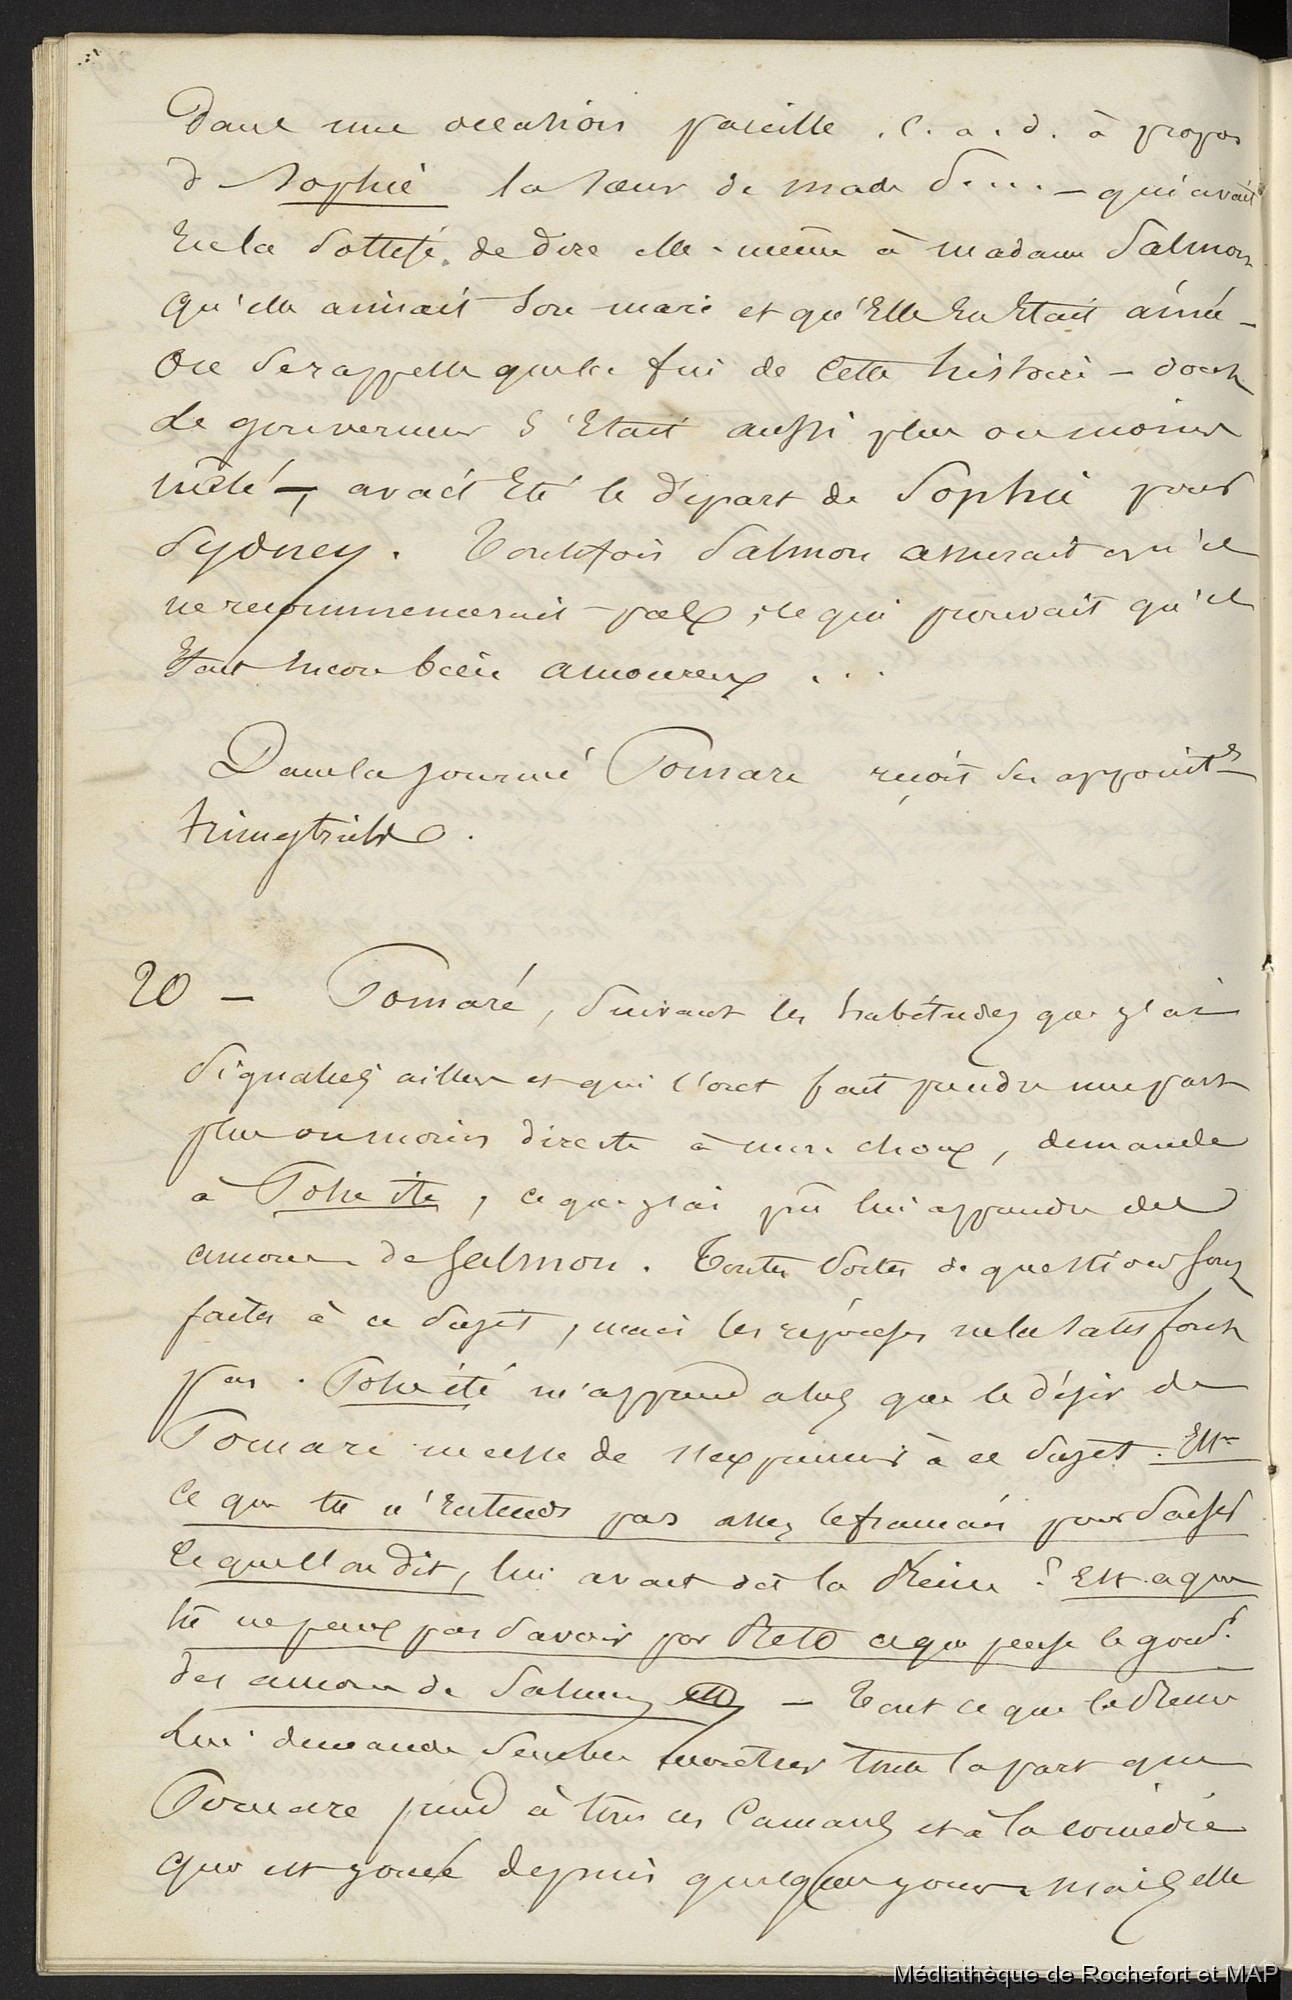 Dans une occasion pareille . c. a. d. à propos
d Sophie la sœur de made S.... – qui avait
eu la sottise de dire elle-même à madame Salmon
qu'elle aimait son mari et qu'elle en était aimée –
On se rappelle que la fin de cette histoire – dont
le gouverneur s'était aussi plus ou moins
mêlé –, avait été le départ de Sophie pour
Sydney. Toutefois Salmon assurait qu'il
ne recommencerait pas, ce qui prouvait qu'il
était encore bien amoureux ...
Dans la journée Pomare reçoit ses appoints
trimestriels.
20 – Pomaré, suivant les habitudes que j'ai
signalées ailleurs et qui l'ont fait prendre une part
plus ou moins directe à mon choux, demande
à Toheité, ce que j'ai pu lui apprendre des
amours de Salmon. Toutes sortes de questions sont
faites à ce sujet, mais les réponses ne la satisfont
pas. Toheité m'apprend alors que le désir de
Pomare ne cesse de s'exprimer à ce sujet. Est-
ce que tu n'entends pas assez le français pour savoir
ce que l'on dit, lui avait dit la Reine ? Est ce que
tu ne peux pas savoir par Reto ce que pense le gouvr.
des amours de Salmon – Tout ce que la Reine
lui demande semble montrer toute la part que
Pomare prend à tous ces cancans et à la comédie
qui est jouée depuis quelques jours. Mais elle
Médiathèque de Rochefort et MAP